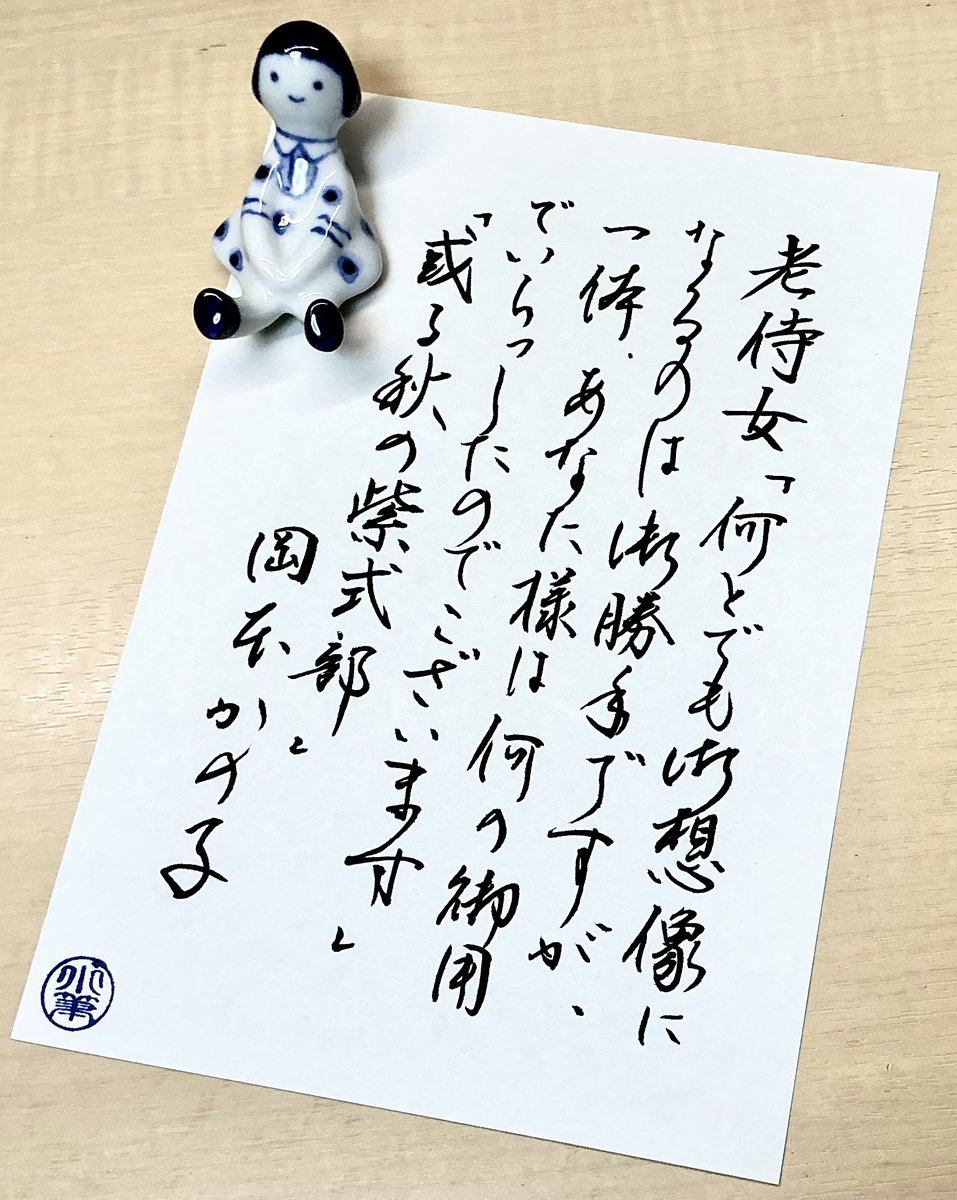 老侍女「何とでも御想像に
なるのは御勝手ですが、
一体、あなた様は何の御用
でいらっしたのでございます」
「或る秋の紫式部」
岡本かの子